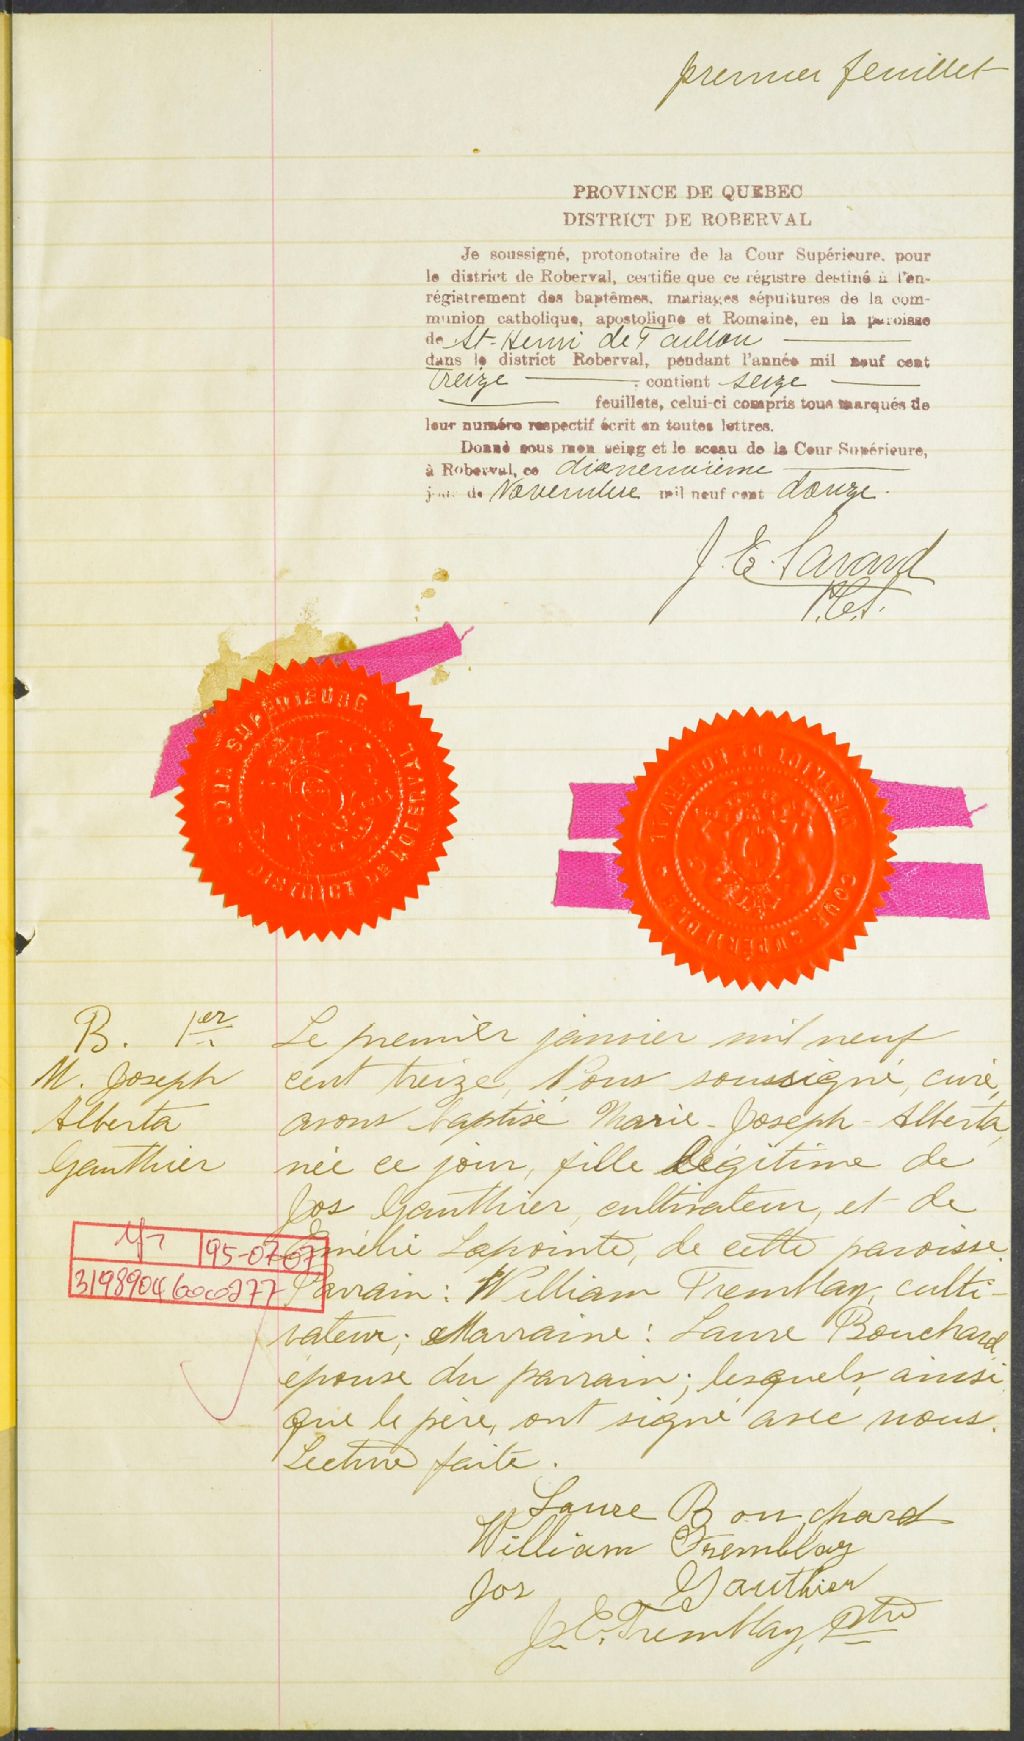 premier feuillet
PROVINCE DE QUEBEC
DISTRICT DE ROBERVAL
Je soussigné, protonotaire de la Cour Supérieure, pour
le district de Roberval, certifie que ce régistre destiné à l'en-
régistrement des baptêmes, mariages sépultures de la com-
munion catholique, apostolique et Romaine, en la paroisse
de St-Henri de Taillon
dans le district Roberval, pendant l'année mil neuf cent
treize contient seize
feuillets, celui-ci compris tous marqués de
leur numéro respectif écrit en toutes lettres.
Donné sous mon seing et le sceau de la Cour Supérieure,
à Roberval, ce dixneuvième
jour de Novembre mil neuf cent douze.
J. E. Savard
P.C.S.
COUR SUPÉRIEURE
DISTRICT DE ROBERVAL
DISTRICT DE ROBERVAL
COUR SUPÉRIEURE
B. 1er
M. Joseph
Alberta
Gauthier
Le premier janvier mil neuf
cent treize, Nous soussigné, curé,
avons baptisé Marie-Joseph-Alberta,
née ce jour, fille légitime de
Jos Gauthier, cultivateur, et de
Emélie Lapointe, de cette paroisse.
Parrain: William Tremblay, culti-
vateur; Marraine: Laure Bouchard,
épouse du parrain; lesquels, ainsi
que le père, ont signé avec nous.
Lecture faite.
95-07-07
31989046000277
Laure Bouchard
William Tremblay
Jos Gauthier
J. E. Tremblay, Ptre